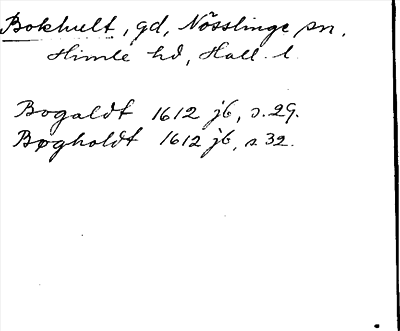 Bokhult, gd, Nösslinge sn,
Himle hd, Hall. l.
Bogaldt 1612 jb, s. 29.
Bøgholdt 1612 jb, s 32.